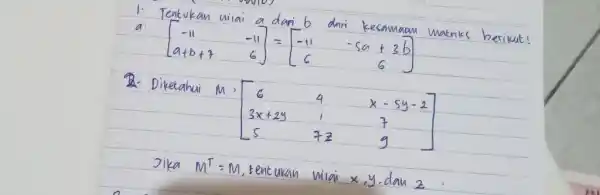 1. Tentukan nilai a dari b dari kesamaan matriks berikut!
a. [-11 -11 = [-11 -5a + 3b
a+b+7 6] 6 6]
2. Diketahui M = [6 4 x - 5y - 2
3x+2y 1 7
5 7z 9]
Jika M^T = M, tentukan nilai x, y, dan z.